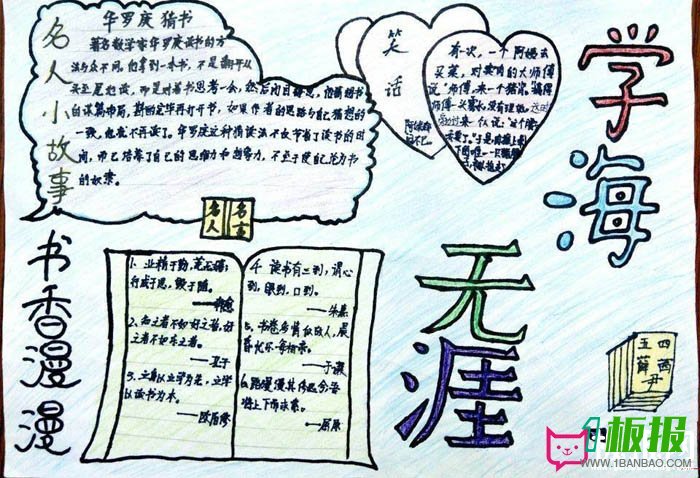 名人小故事
华罗庚 猜书
著名数学家华罗庚读书的方
法与众不同。他拿到一本书，不是翻开从
头至尾地读，而是对着书思考一会，然后闭目静思，他猜想书
的谋篇布局，斟酌完毕再打开书，如果作者的思路与自己猜想的
一致，他就不再读了。华罗庚这种猜读法不仅节省了读书的时
间，而已培养了自己的思维力和想象力，不至于使自己沦为书
的奴隶。
笑话
有次，一个阿姨去
买菜，对卖肉的大师傅
说"师傅，来一个猪
师傅
学海
无涯
名人
名言
书香漫漫
1、业精于勤，荒于嬉；
行成于思，毁于随。
——韩愈
2、知之者不如好之者，好
之者不如乐之者。
——孔子
3、立身以立学为先，立学
以读书为本。
——欧阳修
4、读书有三到，谓心
到，眼到，口到。
——朱熹
5、书卷多情似故人，晨
昏忧乐每相亲。
——于谦
6、路漫漫其修远兮吾
将上下而求索。
——屈原
五 四
薛 西
尹
1板报
WWW.1BANBAO.COM